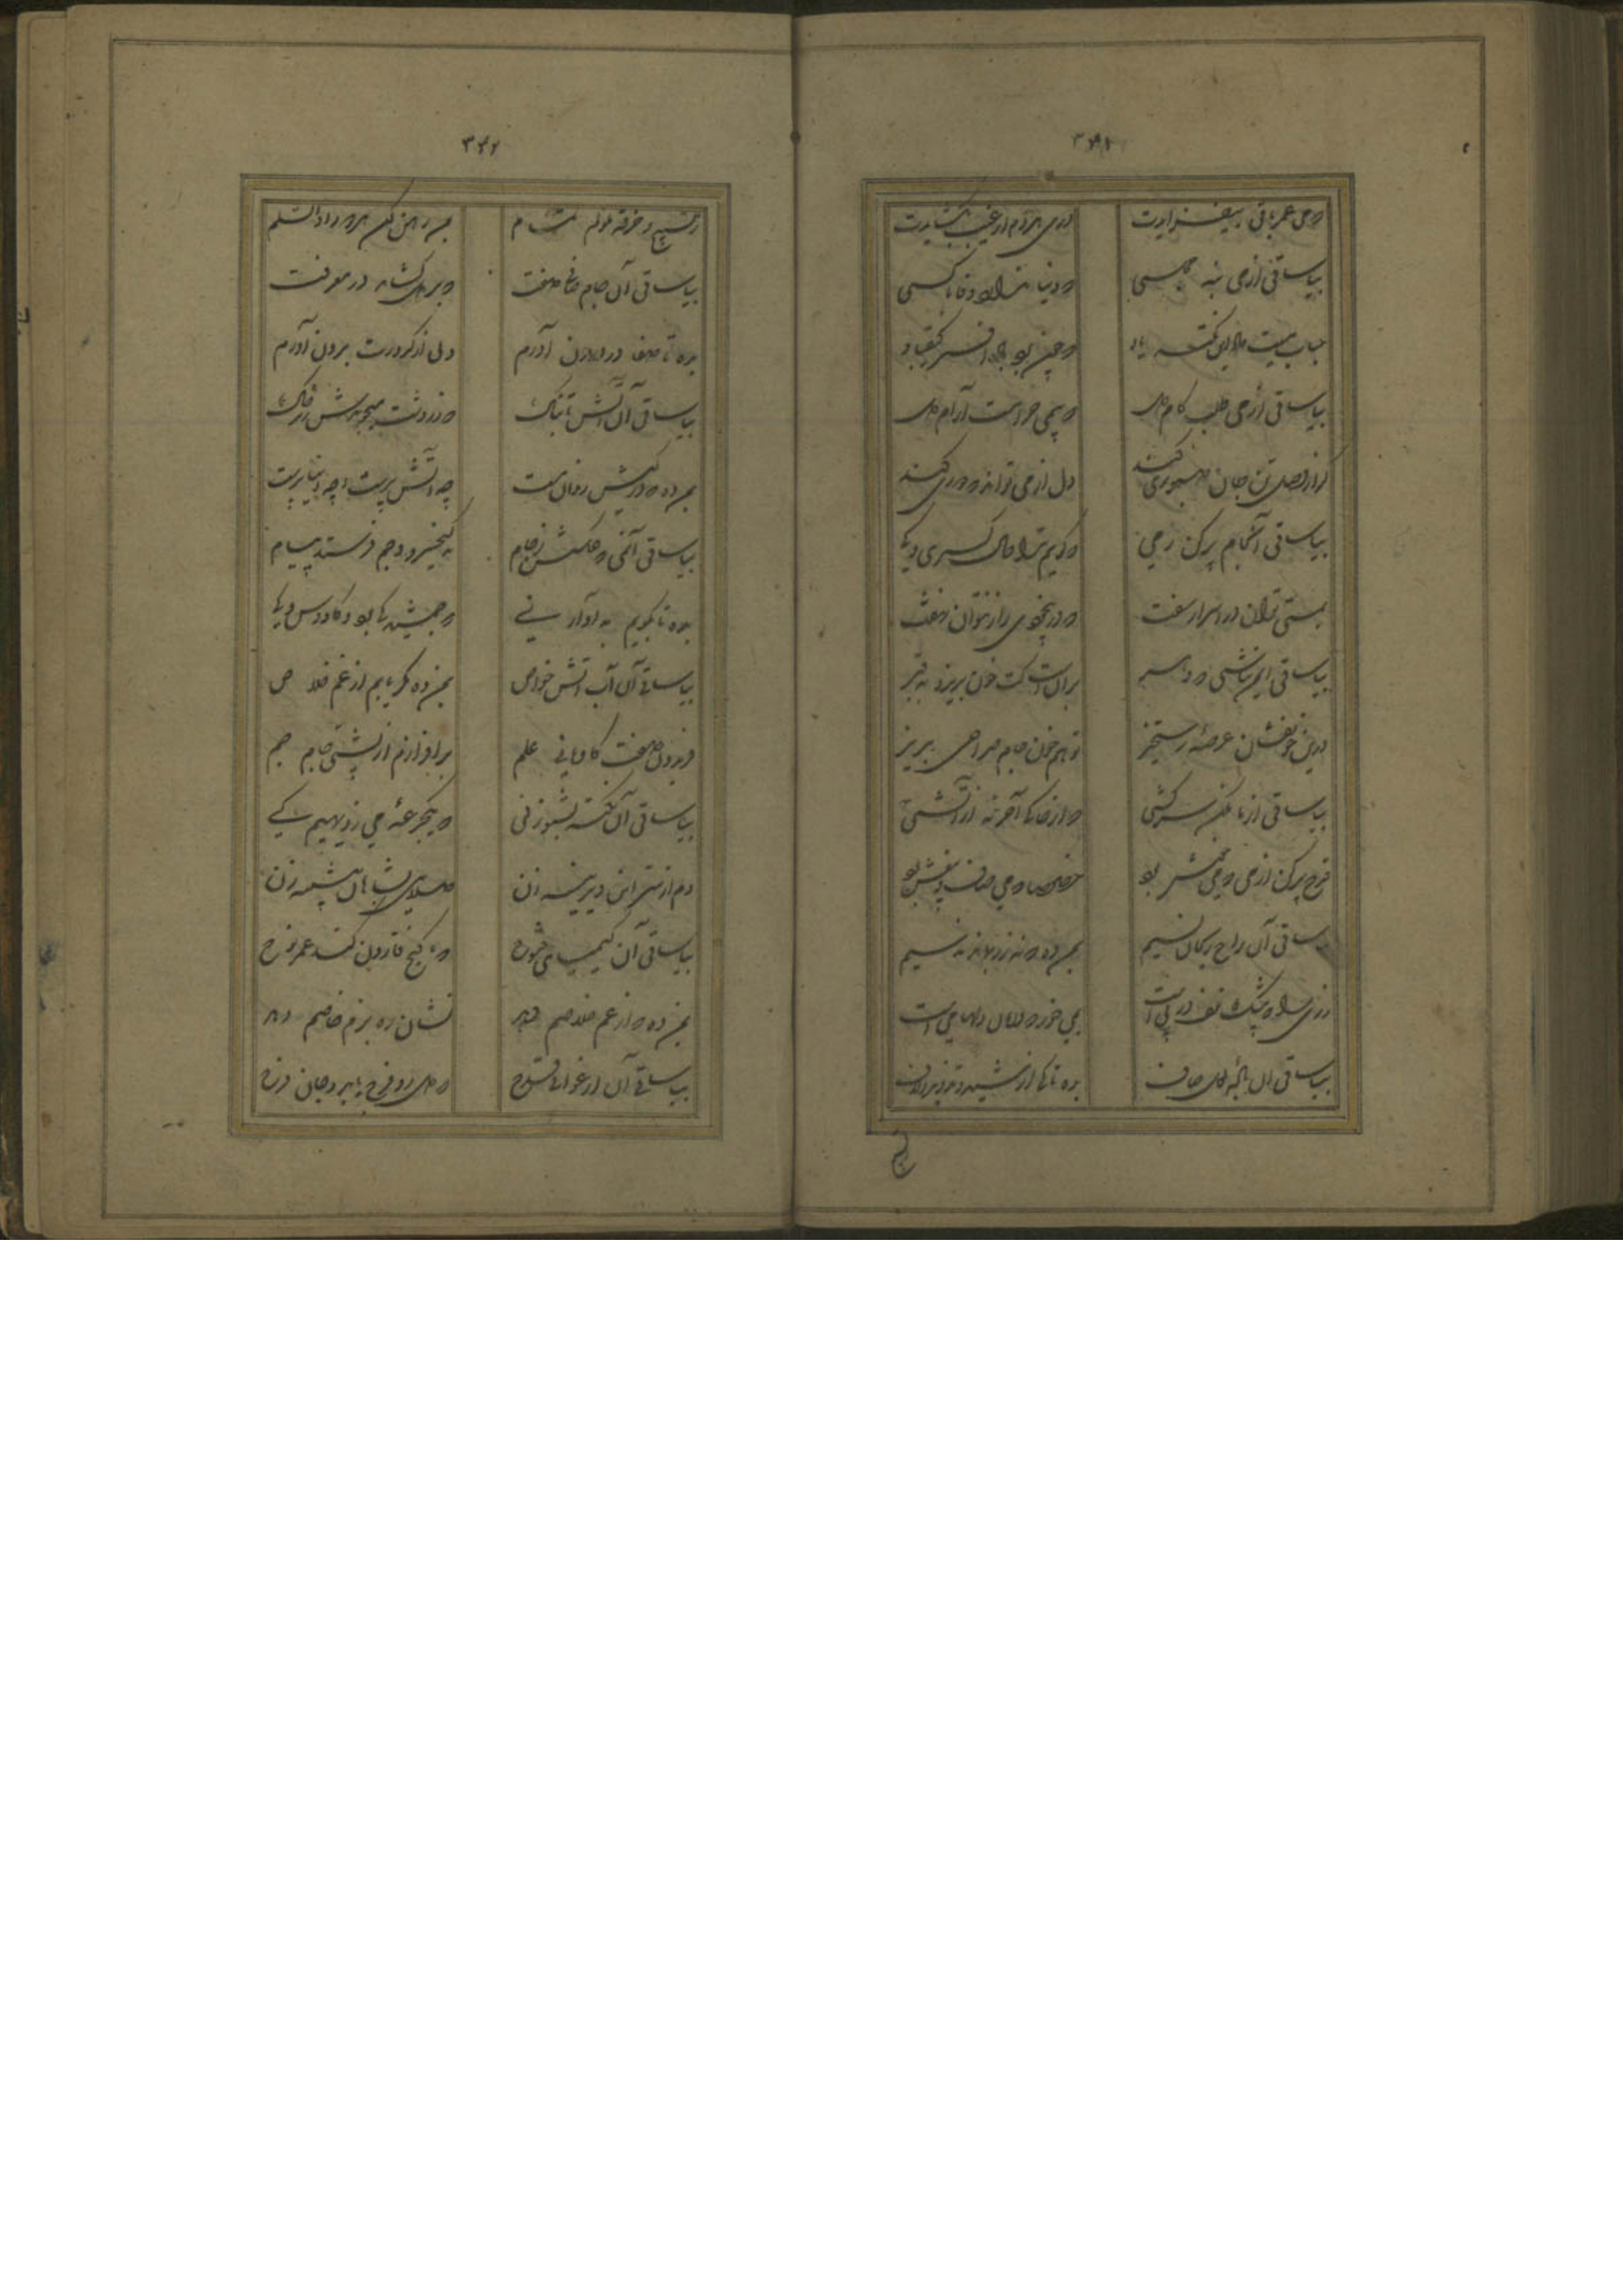 که می عمر باقی بیفزایدت
دری هر دم از غیب بگشایدت
بیا ساقی از می بنه مجلسی
که دنیا ندارد وفا با کسی
حباب میت داد این نکته یاد
که چون برد باد افسر کیقباد
بیا ساقی از می طلب کام دل
که بی می حرامست آرام دل
گر از وصل تن جان صبوری کند
دل از می تواند که دوری کند
بیا ساقی آن جام پر کن ز می
که گویم ترا حال کسری و کی
بمستی توان در اسرار سفت
که در بیخودی راز نتوان نهفت
بیا ساقی ایمن نشینی که دهر
بر آنست کت خون بریزد به قهر
درین خونفشان عرصه رستخیز
تو هم خون جام صراحی بریز
بیا ساقی از ما مکن سرکشی
که از خاکی آخر نه از آتشی
قدح پر کن از می که می خوش بود
خصوصا که می صاف و بیغش بود
ساقی آن راح ریحان نسیم
بمن ده که نه زر بماند نه سیم
زری
بیا ساقی آن باده لعل صاف
بده تا کی از شید و تزویر و لاف
تسبیح
ز تسبیح و خرقه ملولم مدام
بمی رهن کن هر دو را والسلام
بیا ساقی آن جام صافی صفت
که بر دل گشاید در معرفت
بده تا صفا در درون آورم
دلی از کدورت برون آورم
بیا ساقی آن آتش تابناک
که زردشت میجویدش زیر خاک
بمن ده که در کیش رندان مست
چه آتش پرست و چه دنیا پرست
بیا ساقی آن می که عکسش ز جام
به کیخسرو و جم فرستد پیام
بده تا بگویم به آواز نی
که جمشید کی بود و کاووس کی
بیا ساقی آن آب آتش خواص
بمن ده مگر یابم از غم خلاص
فریدون صفت کاویانی علم
برافرازم از پشتی جام جم
بیا ساقی آن نکته بشنو ز نی
که یکجرعه می به ز دیهیم کی
دم از سر این دیر دیرینه زن
صلایی بشاهان پیشینه زن
بیا ساقی آن کیمیای فتوح
که با گنج قارون کند عمر نوح
بمن ده که از غم خلاصم دهد
نشان ره بزم خاصم دهد
بیا ساقی آن ارغوانی قدح
که دل زو فرح یابد و جان فرح